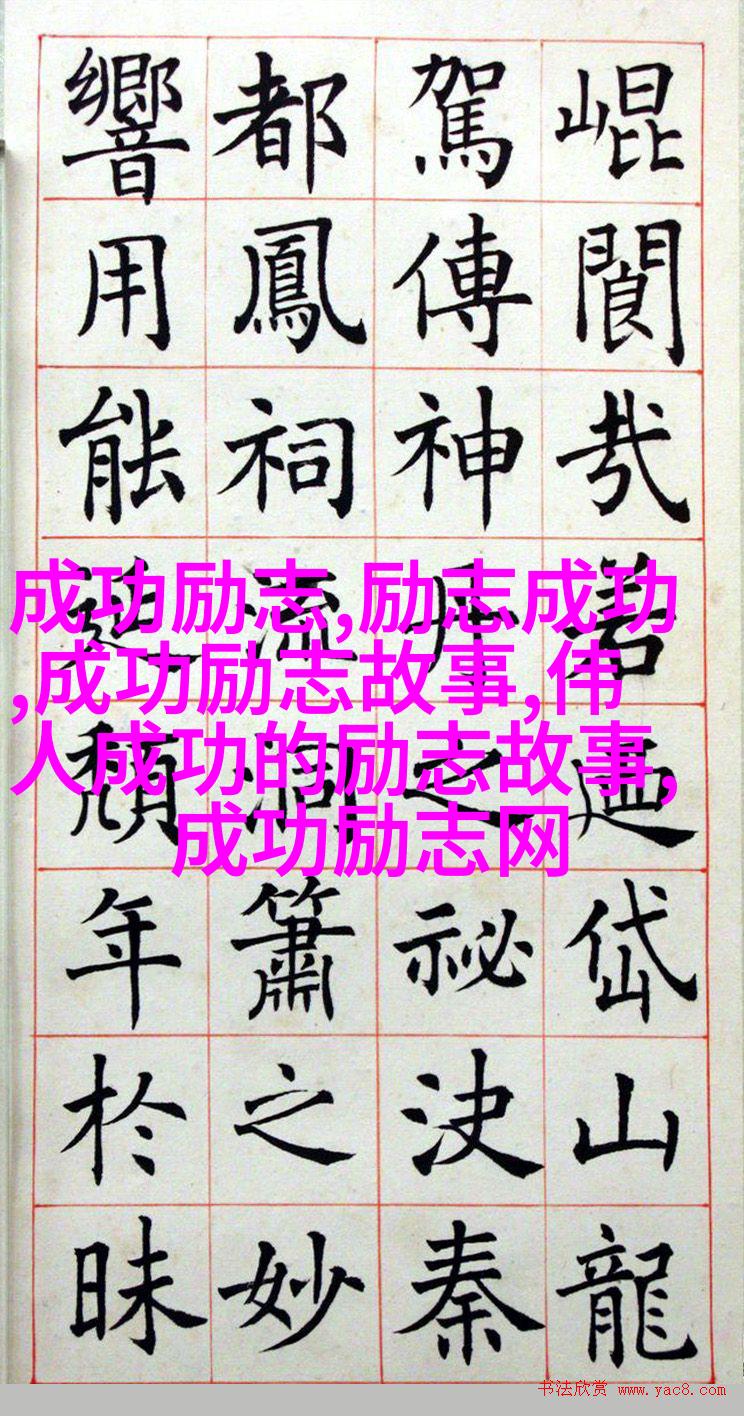 崐閬岱山龍
駕傳神丹之祕決秦
都鳳祠流洞簫之妙
響用能延頹年於昧
成功励志,励志成功
,成功励志故事,伟
人成功的励志故事,
成功励志网
书法欣赏 www.yac8.com